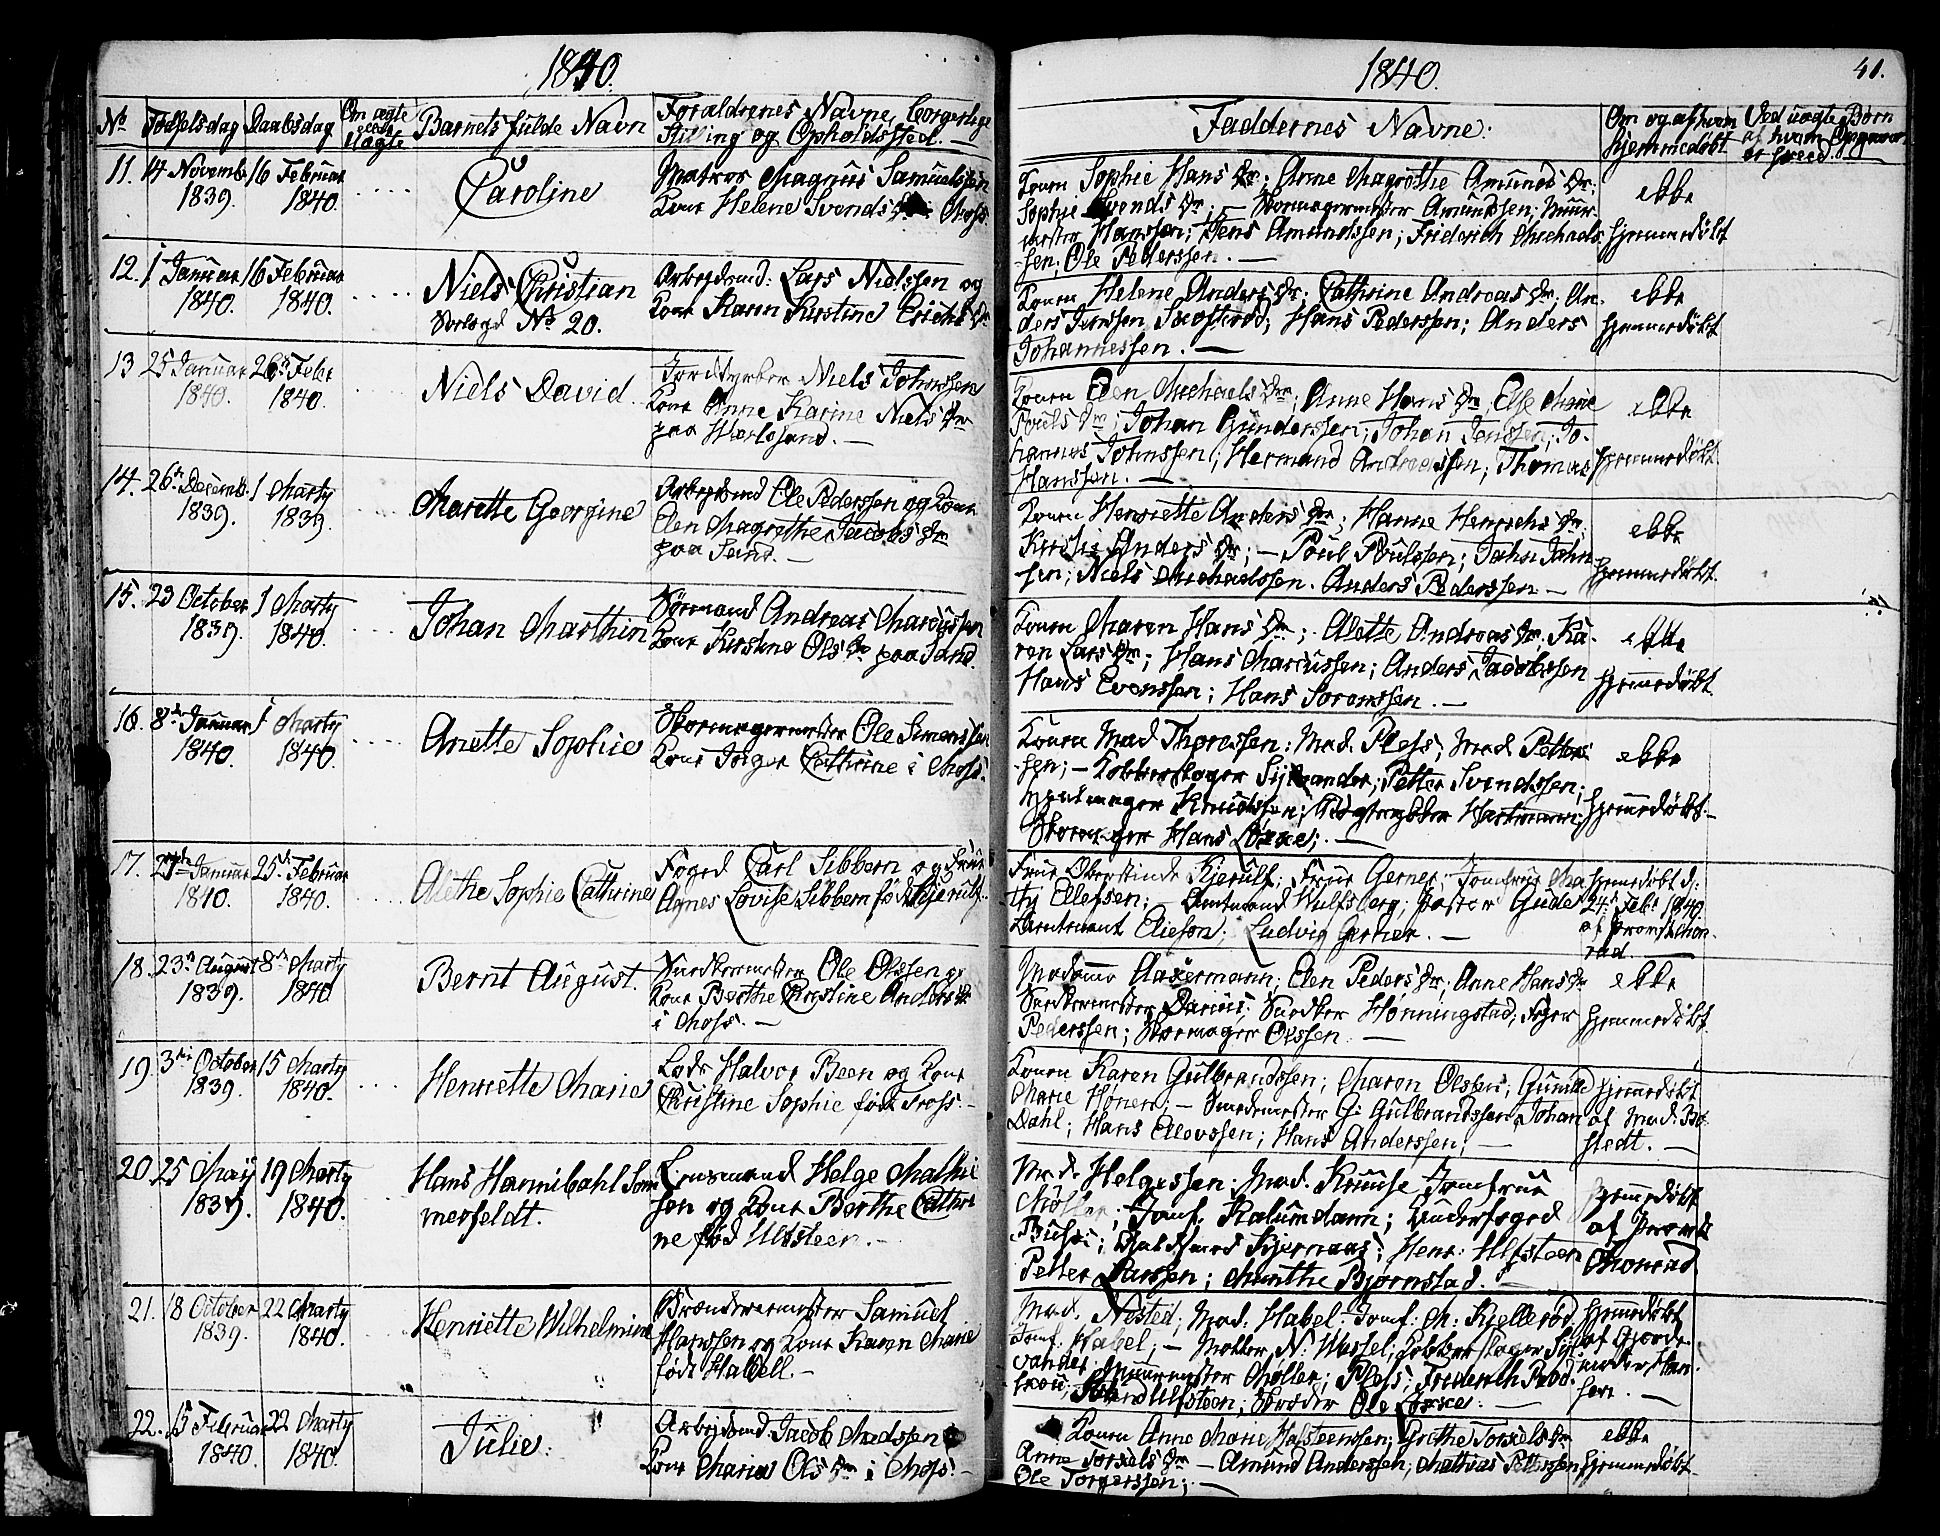 1840.
No Fødselsdag Daabsdag Om ægte eller uægte Barnets fulde Navn Forældrenes Navne, borgerlige Stilling og Opholdssted.
11. 14 Novemb. 1839. 16 Februar 1840. Caroline
Matros Magnus Samuelssen
Kone Helene Svends Dr. Moss.
12. 1 Januar 1840. 16 Februar 1840. Niels Christian
No 20.
Arbejdsmd: Lars Nielssen og
Kone Karen Kirstine Erichs Dr
13 25 Januar 1840. 26 Febr 1840. Niels David.
Jorddyrker Niels Johnssen
Kone Anne Karine Niels Dr
paa
14. 26 Decemb. 1839. 1 Marty 1839. Marette Georgine
Arbejdsmd Ole Pederssen og Kone
Elen Magrethe Jacobs Dr
paa Sand. —
15. 23 October 1839. 1 Marty 1840. Johan Marthin
Sømand Andreas Marcussen
Kone Kirstine Ols Dr paa Sand.
16. 8de Januar 1840. 1 Marty 1840. Anette Sophie
Skomagermester Ole Simenssen
Kone Inger Cathrine i Moss.
17. Januar 1840. 25 Februar 1840. Alethe Sophie Cathrine
Foged Carl Sibbern og Frue
Agnes Lovise Sibbern fød Kjerulf.
18. 23 August 1839. 8 Marty 1840 Bernt August.
Snedkermester Ole Olssen og
Kone Berthe Christine Anders Dr
i Moss. —
19 3 October 1839. 15 Marty 1840. Henriette Marie
Lods Halvor Been og Kone
Christine Sophie født Tross. —
20. 25 May 1839. 19 Marty 1840. Hans Hannibahl Som-
merfeldt.
Lensmand Helge Mathie
sen og Kone Berthe Cathri
ne fød Ulfsteen. —
21. 18 October 1839. 22 Marty 1840. Henriette Wilhelmine
Samuel
Hanssen og Kone Karen Marie
født Habell. —
22. 15 Februar 1840. 22 Marty 1840. Julie.
Arbejdsmd. Jacob Madssen
Kone Maria Ols Dr i Moss. —
1840.
41.
Faddernes Navne.
Om og af hvem hjemmedøbt
Ved uægte Børn af hvem Opgaven er skeed.
Konen Sophie Hans Dr; Anne Magrethe Amunds Dr;
Sophie Svends Dr; — Skomagermester Amundssen; Muur-
mester Hanssen; Jens Amundssen; Friderich Michaels-
sen; Ole Pederssen. —
ikke hjemmedøbt
Konen Helene Anders Dr; Cathrine Andreas Dr; An-
ders Hans Pederssen; Anders
Johannessen. —
ikke hjemmedøbt
Konen Elen Michaels Dr; Anne Hans Dr, Else Marie
Pouls Dr; Johan Gunderssen; Johan Jenssen; Jo-
hannes Johnssen; Hermand Andreassen; Thomas
Hanssen. —
ikke hjemmedøbt
Konen Henriette Anders Dr; Hanne Henrichs Dr.
Kirstie Anders Dr; — Poul Poulssen; John John
sen; Niels Michaelssen. Anders Pederssen —
ikke hjemmedøbt.
Konen Maren Hans Dr; Alette Andreas Dr; Ka-
ren Lars Dr; Hans Marcussen; Anders Jacobssen
Hans Evenssen; Hans Sorenssen. —
ikke hjemmedøbt
Konen Mad Thoressen; Mad. Pless; Mad Petter-
sen; — Kobberslager Sylvander; Petter Svendssen;
Knudssen; Hartmann;
Skomager Hans Loxxe; —
ikke hjemmedøbt —
Frue Oberstinde Kjerulf; Frue Gerner; Jomfrue Ma
thy Ellefsen; — Amtmand Wulfsberg; Pastor Gude
Lieutenant Elieson; Ludvig Gerner. —
hjemmedøbt d:
24 Febr 1840
af Provst Chon-
rad.
Madame Aakermann; Elen Peders Dr; Anne Hans Dr
Snedkermester Darius; Snedker Hønningstad;
Pederssen; Skomager Olssen. —
ikke hjemmedøbt
Konen Karen Gulbrandssen; Maren Olsen; Gunild
Marie Hønen; — Smedemester G: Gulbrandssen, Johan
Dahl; Hans Ellevssen; Hans Anderssen; —
hjemmedøbt
af Mad. Bo-
stedt. —
Mad. Helgessen; Mad. Kruuse Jomfrue
Møller; Jomf. Kalumdann; Underfoged
Bussi; Kjernaas; Henr: Ulfsteen
Petter Larssen; Marthe Bjørnstad. —
hjemmedøbt
af Provst
Chonrad
Mad. Nested; Mad. Habel; Jomf: M: Kjellerød.
Jomf. Habel; — N: Wessel; Kobberslager Syl-
vander; Muurmester Møller; Pless; Frederich
Ulfsteen; Skræder Ole Loxxe. —
hjemmedøbt
af Jorde-
moder Han-
sen. —
Konen Anne Marie Halsteenssen; Grethe Torkels Dr
Anne Torkels Dr — Amund Anderssen; Mathias Petterssen
Ole Torgerssen; —
ikke hjemmedøbt —